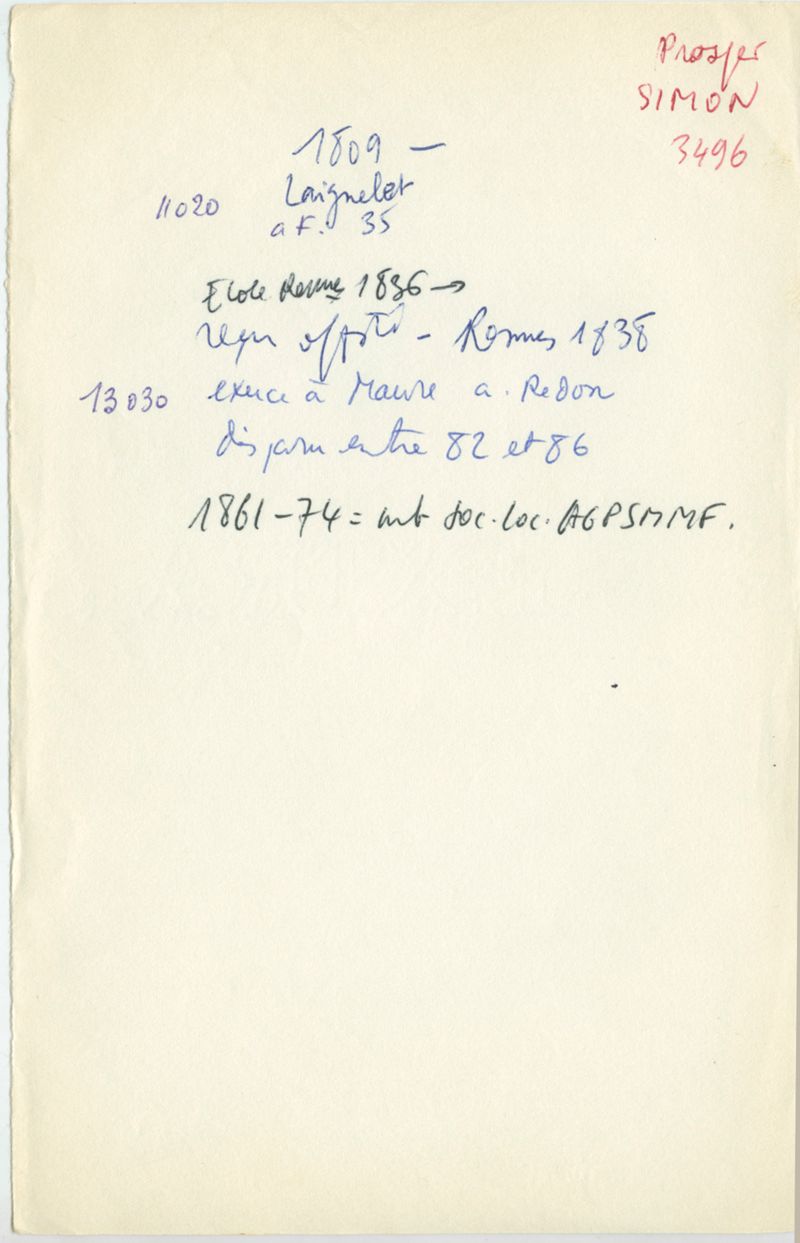 Prosper
SIMON
3496
1809 –
11020 Laignelet
a F. 35
Ecole Rennes 1836 →
reçu off – Rennes 1838
13030 exerce à Maure a. Redon
disparu entre 82 et 86
1861-74 = mb soc. loc. AGPSMMF.